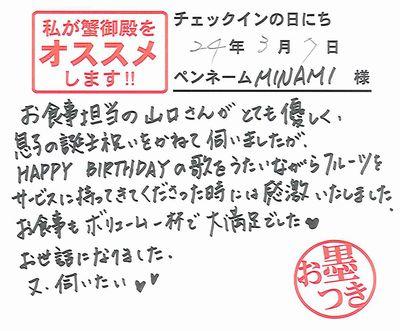 私が蟹御殿を
オススメ
します!!
チェックインの日にち
24年3月7日
ペンネーム MINAMI 様
お食事担当の山口さんがとても優しく、
息子の誕生祝いをかねて伺いましたが、
HAPPY BIRTHDAYの歌をうたいながらフルーツを
サービスに持ってきてくださった時には感激いたしました。
お食事もボリューム一杯で大満足でした♥
お世話になりました。
又、伺いたい♥♥
お墨つき